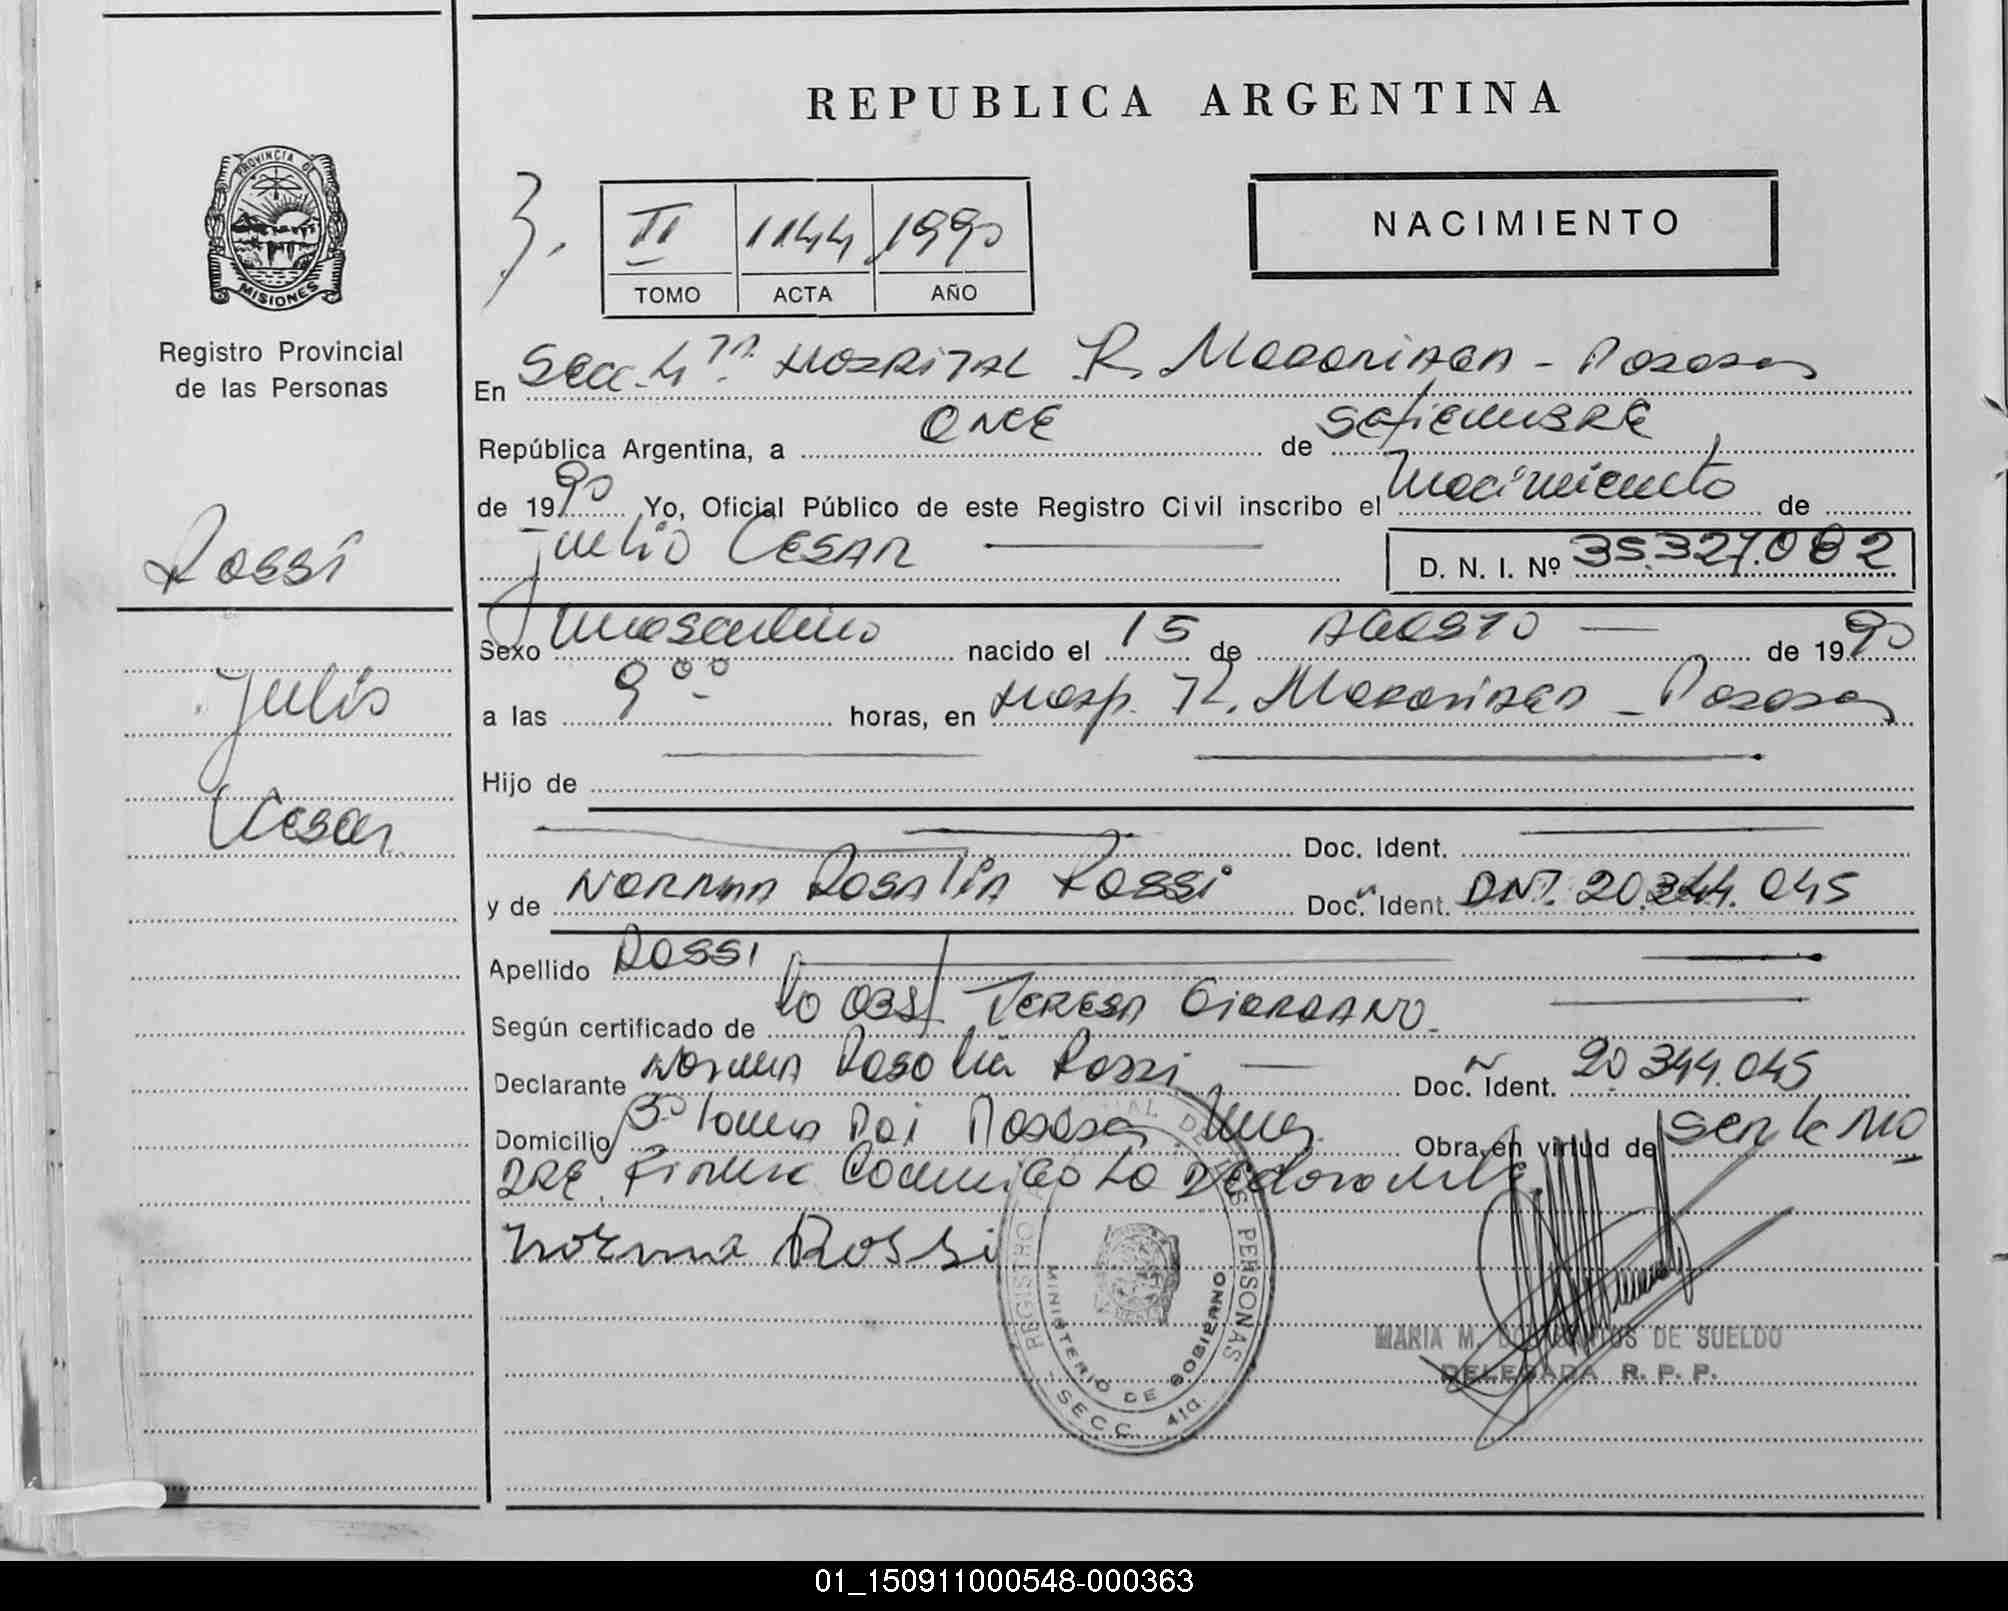 REPUBLICA ARGENTINA
PROVINCIA DE
MISIONES
Registro Provincial
de las Personas
3.
II 1144 1990
TOMO ACTA AÑO
NACIMIENTO
En Secc. 4ª HOSPITAL R. Madariaga - Posadas
República Argentina, a ONCE de SetiemBRE
de 1990 Yo, Oficial Público de este Registro Civil inscribo el Nacimiento de
Julio CESAR D. N. I. Nº 35.327.082
Rossi
Julio
Cesar
Sexo Masculino nacido el 15 de AGOSTO de 1990
a las 9 00 horas, en Hosp. R. Madariaga - Posadas
Hijo de
Doc. Ident.
y de NORMA Rosalia Rossi Doc. Ident. DNI. 20.344.045
Apellido ROSSI
Según certificado de la OBST TERESA GIORDANO
Declarante Norma Rosalia Rossi Doc. Ident. 20.344.045
Domicilio Posadas Obra en virtud de ser la MA
DRE. Firma la Declarante.
Norma Rossi
REGISTRO DE LAS PERSONAS
MINISTERIO DE GOBIERNO
- SECC. 4ta.
MARIA M. DE SUELDO
DELEGADA R. P. P.
01_150911000548-000363